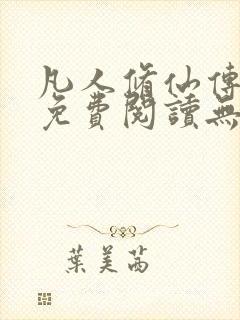 凡人脩仙傳
免費閱讀無
葉美茜